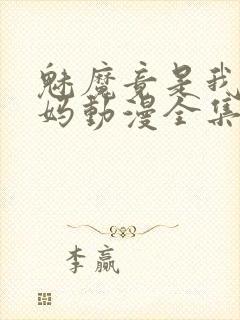 魅魔竟是我
妈動漫全集
李赢